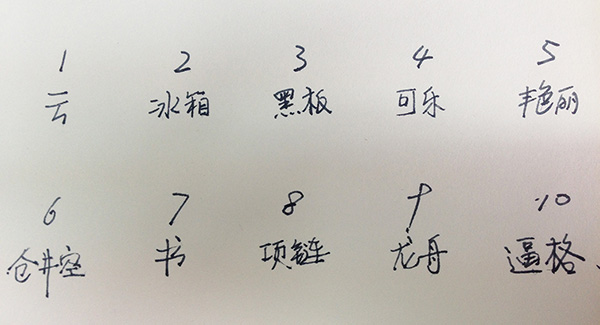 1 2 3 4 5
云 冰箱 黑板 可乐 艳丽
6 7 8 9 10
仓井空 书 项链 龙舟 逼格